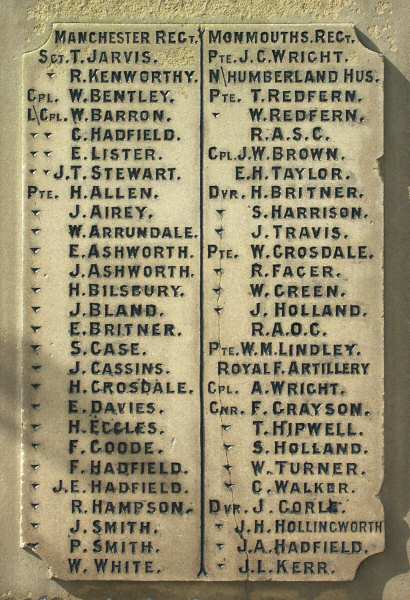 MANCHESTER REGT.
SGT. T. JARVIS.
" R. KENWORTHY.
CPL. W. BENTLEY.
L\CPL. W. BARRON.
" " C. HADFIELD.
" " E. LISTER.
" " J.T. STEWART.
PTE. H. ALLEN.
" J. AIREY.
" W. ARRUNDALE.
" E. ASHWORTH.
" J. ASHWORTH.
" H. BILSBURY.
" J. BLAND.
" E. BRITNER.
" S. CASE.
" J. CASSINS.
" H. CROSDALE.
" E. DAVIES.
" H. ECCLES.
" F. GOODE.
" F. HADFIELD.
" J.E. HADFIELD.
" R. HAMPSON.
" J. SMITH.
" P. SMITH.
" W. WHITE.
MONMOUTHS. REGT.
PTE. J.C. WRIGHT.
N\HUMBERLAND HUS.
PTE. T. REDFERN.
" W. REDFERN.
R.A.S.C.
CPL. J.W. BROWN.
" E.H. TAYLOR.
DVR. H. BRITNER.
" S. HARRISON.
" J. TRAVIS.
PTE. W. CROSDALE.
" R. FAGER.
" W. GREEN.
" J. HOLLAND.
R.A.O.C.
PTE. W.M. LINDLEY.
ROYAL F. ARTILLERY
CPL. A. WRIGHT.
GNR. F. GRAYSON.
" T. HIPWELL.
" S. HOLLAND.
" W. TURNER.
" C. WALKER.
DVR. J. GORLE.
" J.H. HOLLINGWORTH
" J.A. HADFIELD.
" J.L. KERR.